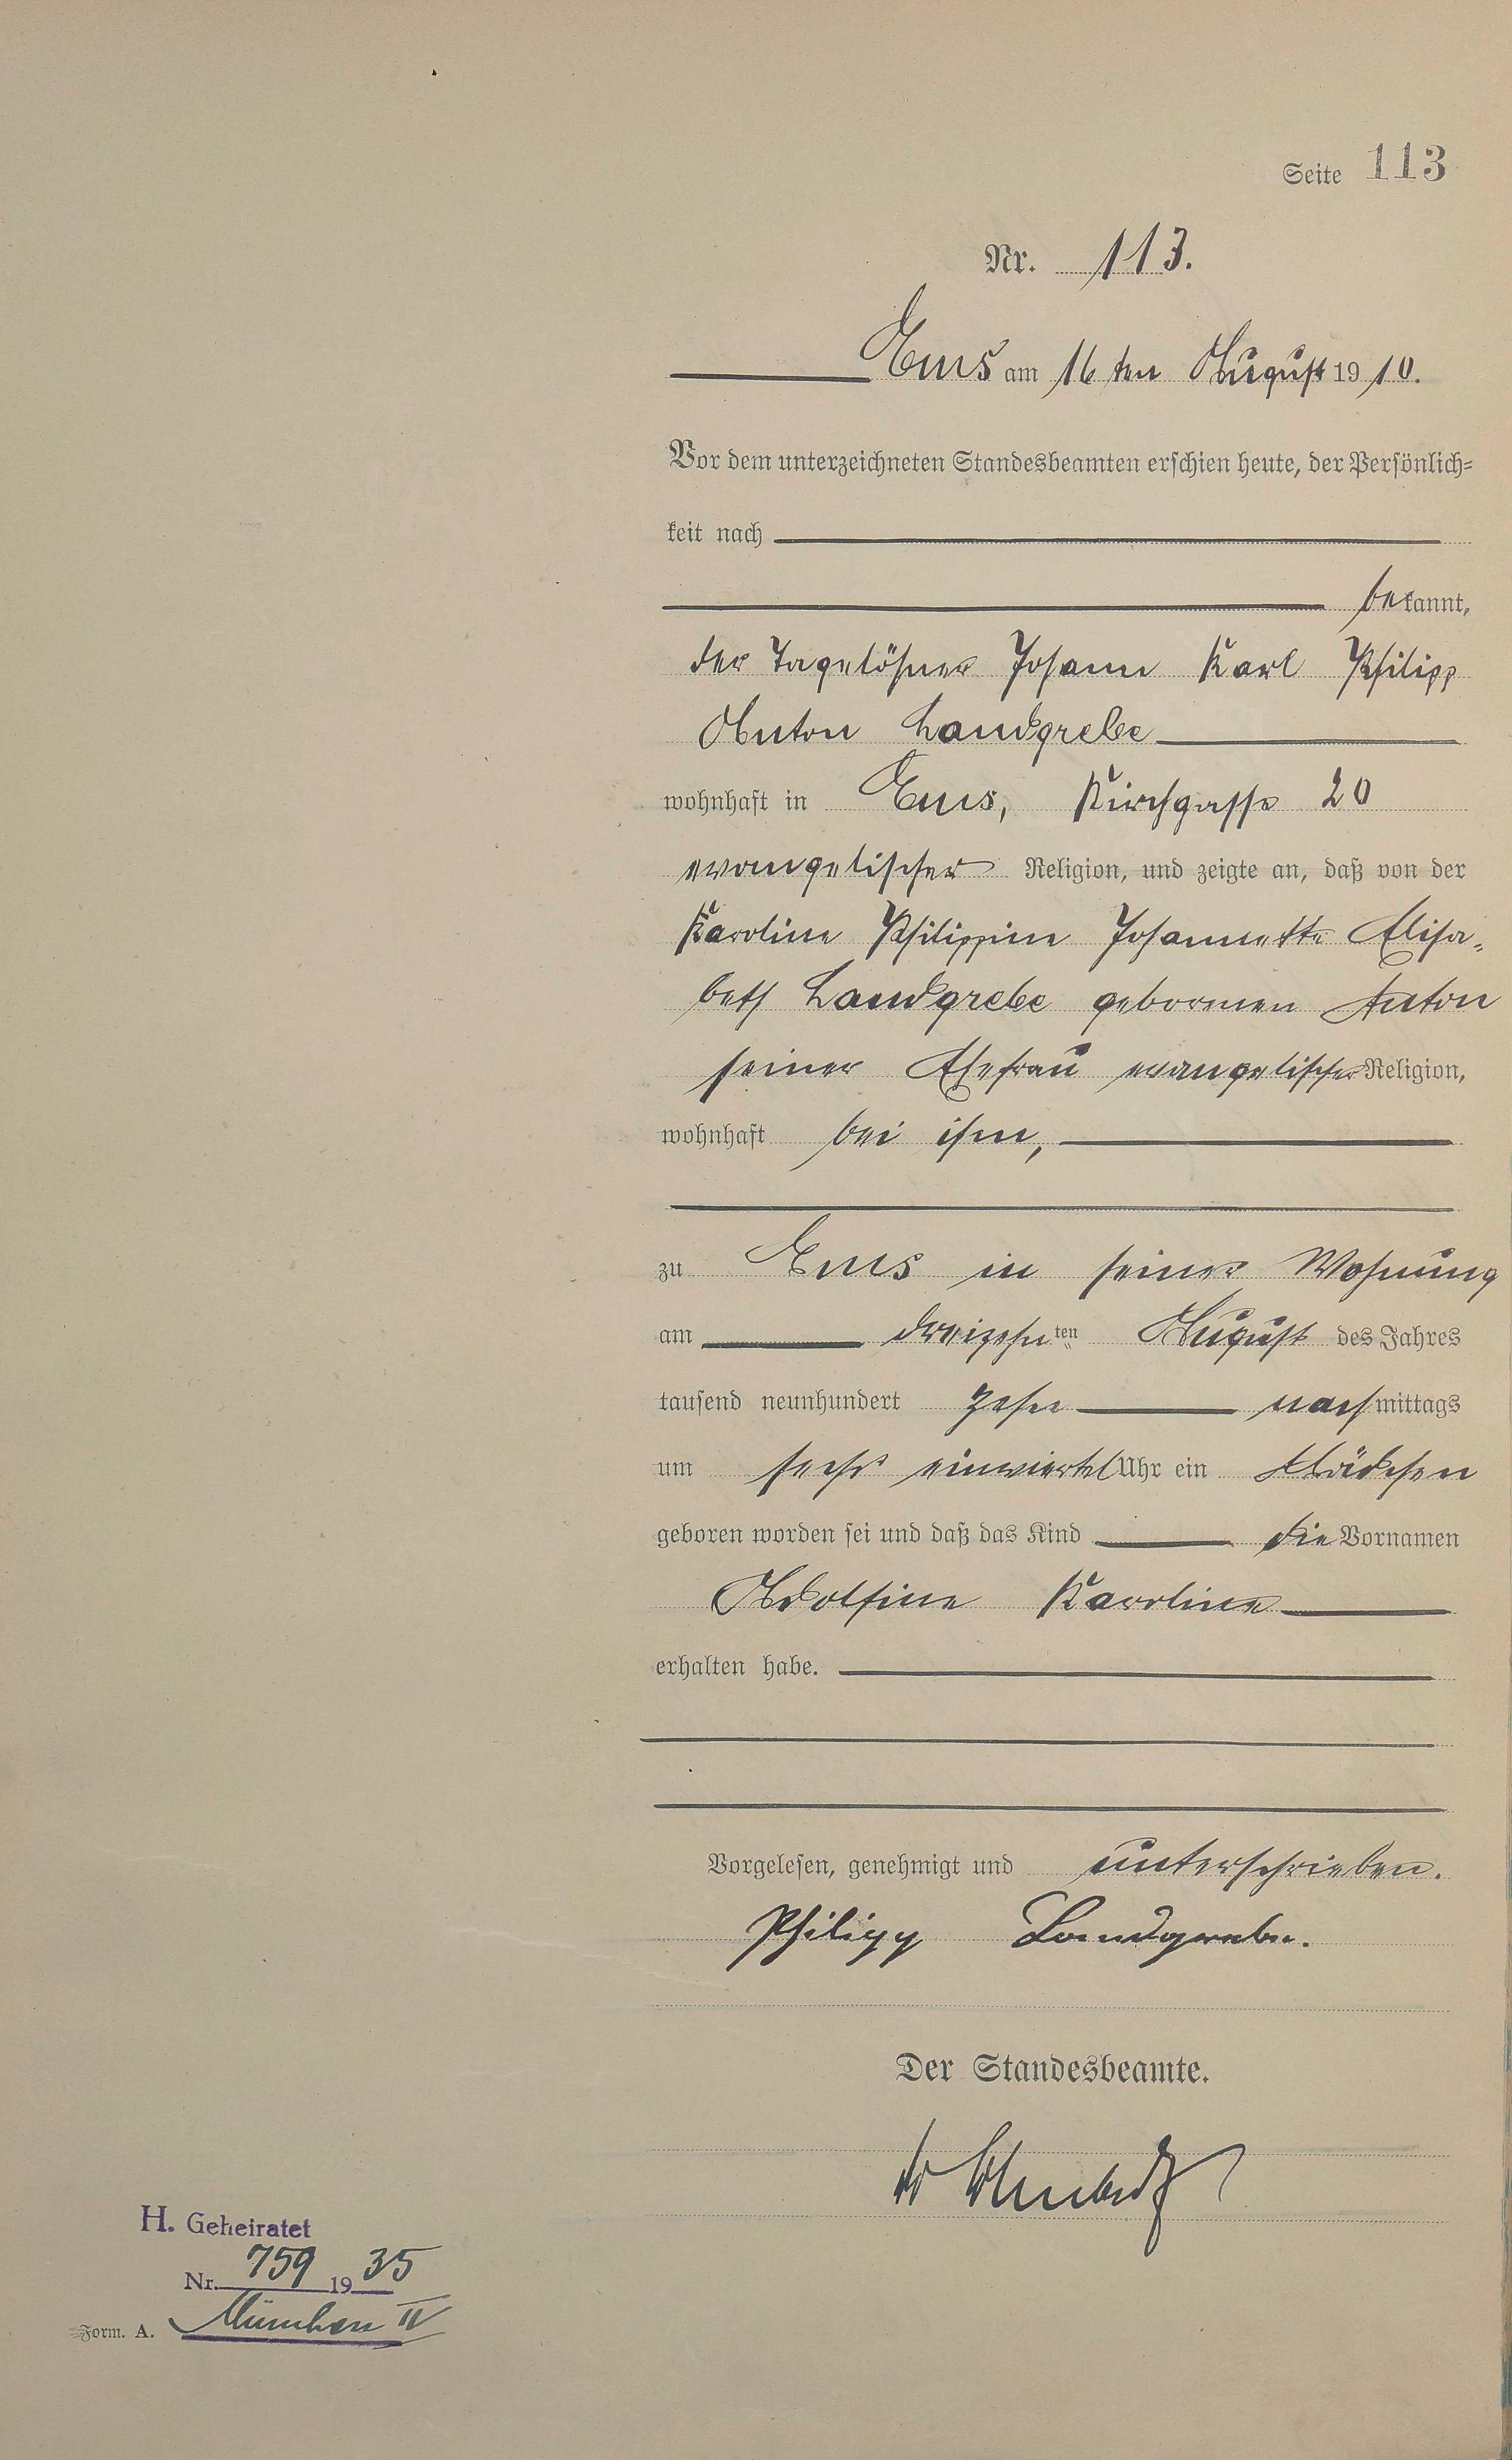 Seite 113
Nr. 113.
Ems am 16ten August 1910.
Vor dem unterzeichneten Standesbeamten erschien heute, der Persönlich-
keit nach
bekannt,
der Tagelöhner Johann Karl Philipp
Anton Landgrebe
wohnhaft in Ems, Kirchgasse 20
evangelischer Religion, und zeigte an, daß von der
Karoline Philippine Johannette Elisa-
beth Landgrebe geborenen Anton
seiner Ehefrau evangelischer Religion,
wohnhaft bei ihm,
zu Ems in seiner Wohnung
am dreizehnten August des Jahres
tausend neunhundert zehn nachmittags
um sechs einviertel Uhr ein Mädchen
geboren worden sei und daß das Kind die Vornamen
Adolfine Karoline
erhalten habe.
Vorgelesen, genehmigt und unterschrieben.
Philipp Landgrebe.
Der Standesbeamte.
H. Geheiratet
Nr. 759 1935
Form. A. München IV